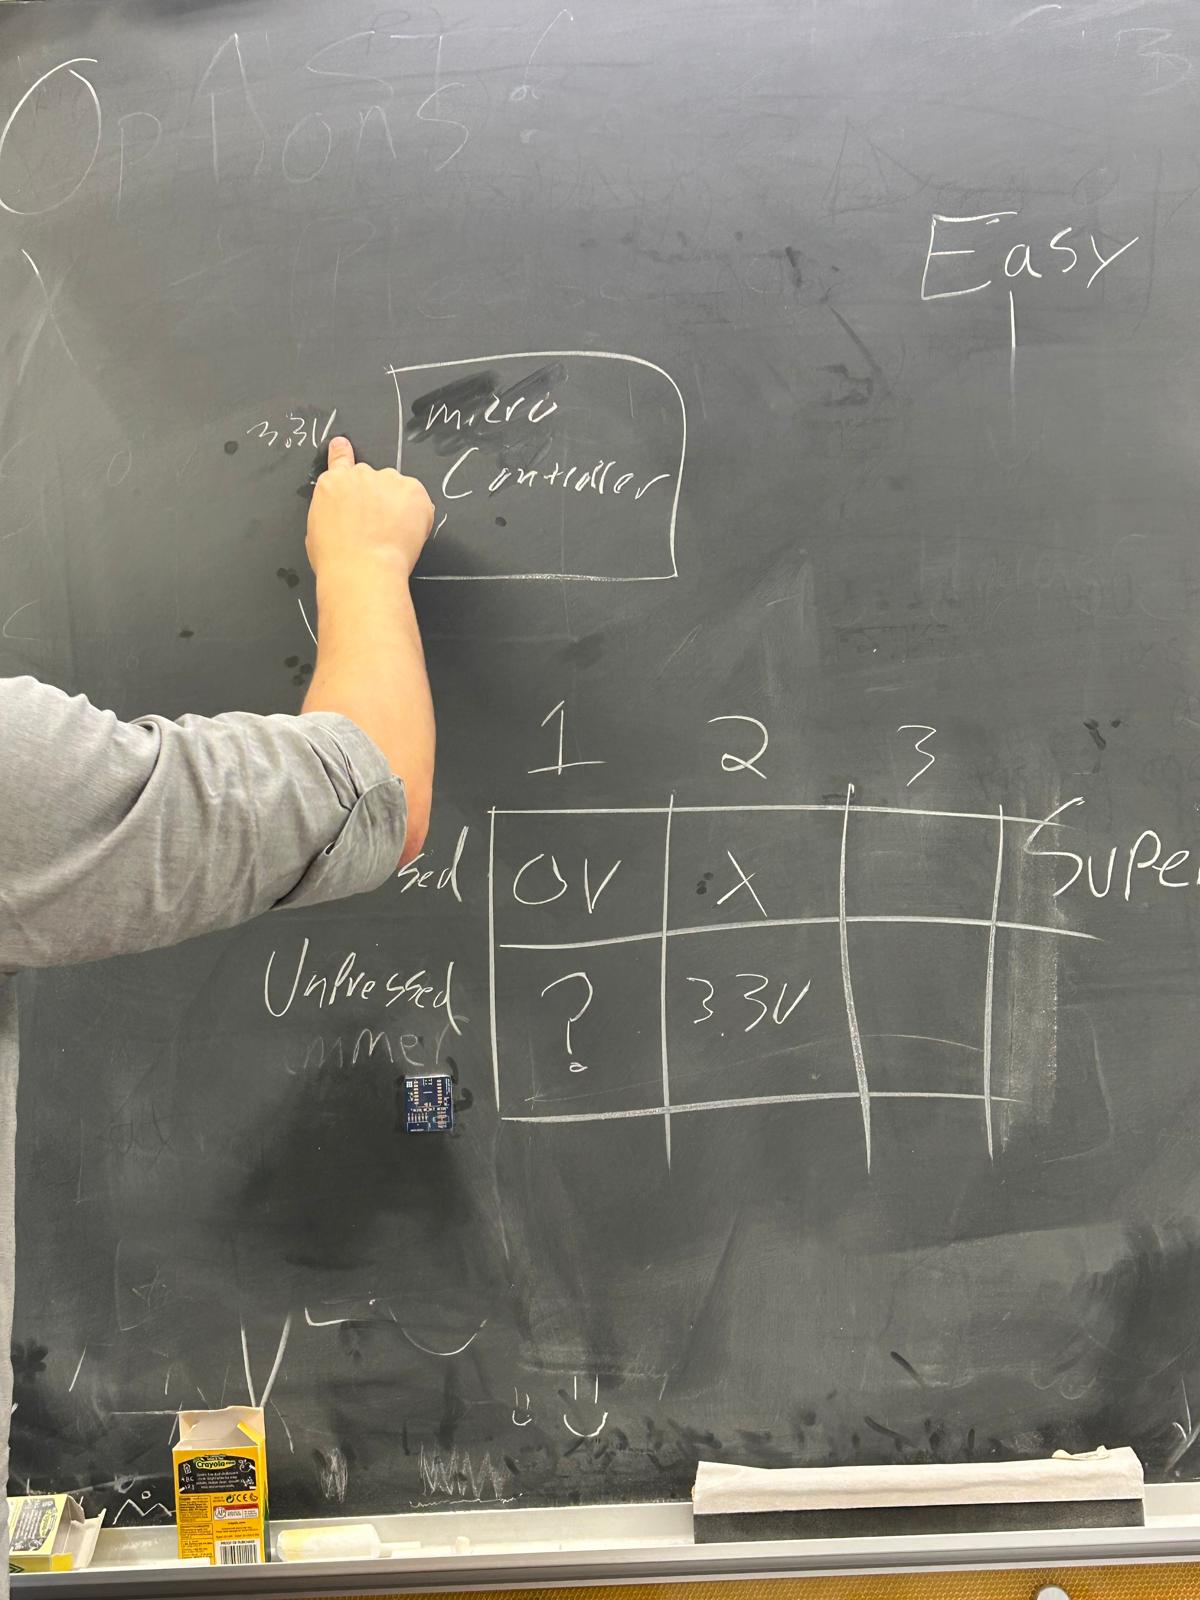 Options:
Easy
3.3V
micro
Controller
1 2 3
sed 0V X Supe
Unpressed ? 3.3V
mmer
Crayola
PROOF OF PURCHASE